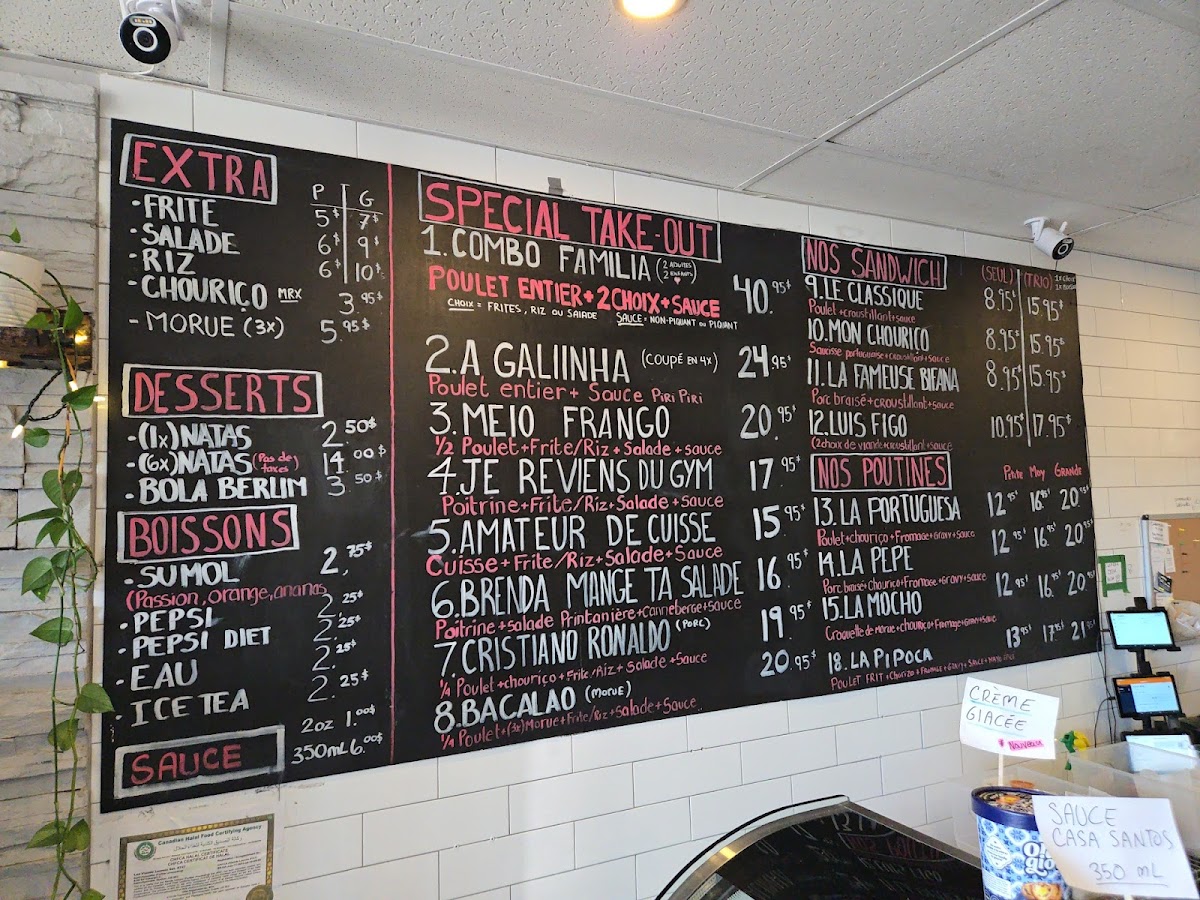 EXTRA
P G
·FRITE 5$ 7$
·SALADE 6$ 9$
·RIZ 6$ 10$
·CHOURIÇO MRX 3.95$
-MORUE (3x) 5.95$
DESSERTS
-(1x)NATAS 2.50$
-(6x)NATAS (Pas de taxes) 14.00$
-BOLA BERLIM 3.50$
BOISSONS
-SUMOL 2.75$
(Passion, orange, ananas
·PEPSI 2.25$
·PEPSI DIET 2.25$
-EAU 2.25$
·ICE TEA 2.25$
SAUCE
2oz 1.00$
350mL 6.00$
SPECIAL TAKE-OUT
1.COMBO FAMILIA (2 ADULTES 2 ENFANTS) 40.95$
POULET ENTIER+2CHOIX+SAUCE
CHOIX = FRITES, RIZ OU SALADE SAUCE = NON-PIQUANT OU PIQUANT
2.A GALIINHA (COUPÉ EN 4x) 24.95$
Poulet entier + Sauce PIRI PIRI
3.MEIO FRANGO 20.95$
1/2 Poulet+Frite/Riz+Salade+sauce
4.JE REVIENS DU GYM 17.95$
Poitrine+Frite/Riz+Salade+sauce
5.AMATEUR DE CUISSE 15.95$
Cuisse+Frite/Riz+Salade+Sauce
6.BRENDA MANGE TA SALADE 16.95$
Poitrine+salade Printanière+Canneberge+sauce
7.CRISTIANO RONALDO (PORC) 19.95$
1/4 Poulet+chouriço+Frite/Riz+salade+Sauce
8.BACALAO (MORUE) 20.95$
1/4 Poulet+(3x)Morue+Frite/Riz+Salade+Sauce
NOS SANDWICH (SEUL) (TRIO)
9.LE CLASSIQUE 8.95$ 15.95$
Poulet+croustillant+sauce
10.MON CHOURIÇO 8.95$ 15.95$
Saucisse portugaise+croustillant+sauce
11.LA FAMEUSE BIFANA 8.95$ 15.95$
Porc braisé+croustillant+sauce
12.LUIS FIGO 10.95$ 17.95$
(2choix de viande+croustillant+sauce
NOS POUTINES Petite Moy GRANDE
13.LA PORTUGUESA 12.95$ 16.95$ 20.95$
Poulet+chouriço+Fromage+Gravy+sauce
14.LA PEPE 12.95$ 16.95$ 20.95$
Porc braisé+chouriço+Fromage+Gravy+sauce
15.LA MOCHO 12.95$ 16.95$ 20.95$
Croquette de Morue+chouriço+Fromage+Gravy+sauce
18.LA PIPOCA 13.95$ 17.95$ 21.95$
POULET FRIT+Chorizo+FROMAGE+GRAVY+SAUCE+
CRÈME
GLACÉE
NOUVEAU
SAUCE
CASA SANTOS
350 mL
Canadian Halal Food Certifying Agency
CHFCA HALAL CERTIFICATE
CHFCA CERTIFICAT DE HALAL